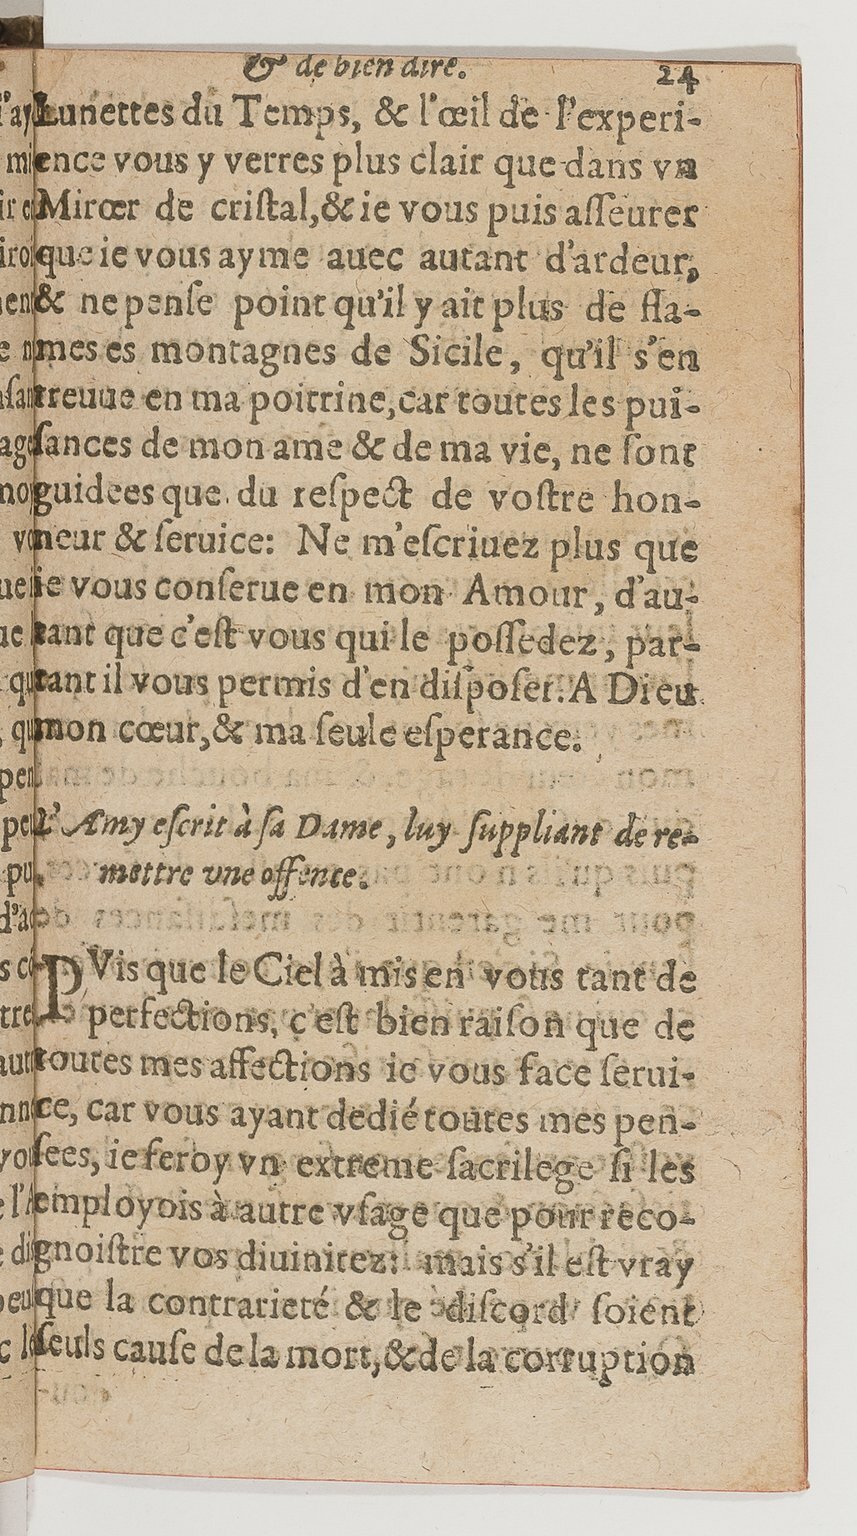 & de bien dire. 24
Lunettes du Temps, & l'œil de l'experi-
ence vous y verres plus clair que dans vn
Mirœr de criſtal, & ie vous puis aſſeurer
que ie vous ayme auec autant d'ardeur,
& ne penſe point qu'il y ait plus de fla-
mes es montagnes de Sicile, qu'il s'en
treuue en ma poitrine, car toutes les puiſ-
ſances de mon ame & de ma vie, ne ſont
guidees que du reſpect de voſtre hon-
neur & ſeruice: Ne m'eſcriuez plus que
ie vous conſerue en mon Amour, d'au-
tant que c'eſt vous qui le poſſedez, par-
tant il vous permis d'en diſpoſer. A Dieu
mon cœur, & ma ſeule eſperance.
L'Amy eſcrit à ſa Dame, luy ſuppliant de re-
mettre vne offence.
PVis que le Ciel à mis en vous tant de
perfections, c'eſt bien raiſon que de
toutes mes affections ie vous face ſerui-
ce, car vous ayant dedié toutes mes pen-
ſees, ie feroy vn extreme ſacrilege ſi les
employois à autre vſage que pour reco-
gnoiſtre vos diuinitez: mais s'il eſt vray
que la contrarieté & le diſcord ſoient
ſeuls cauſe de la mort, & de la corruption